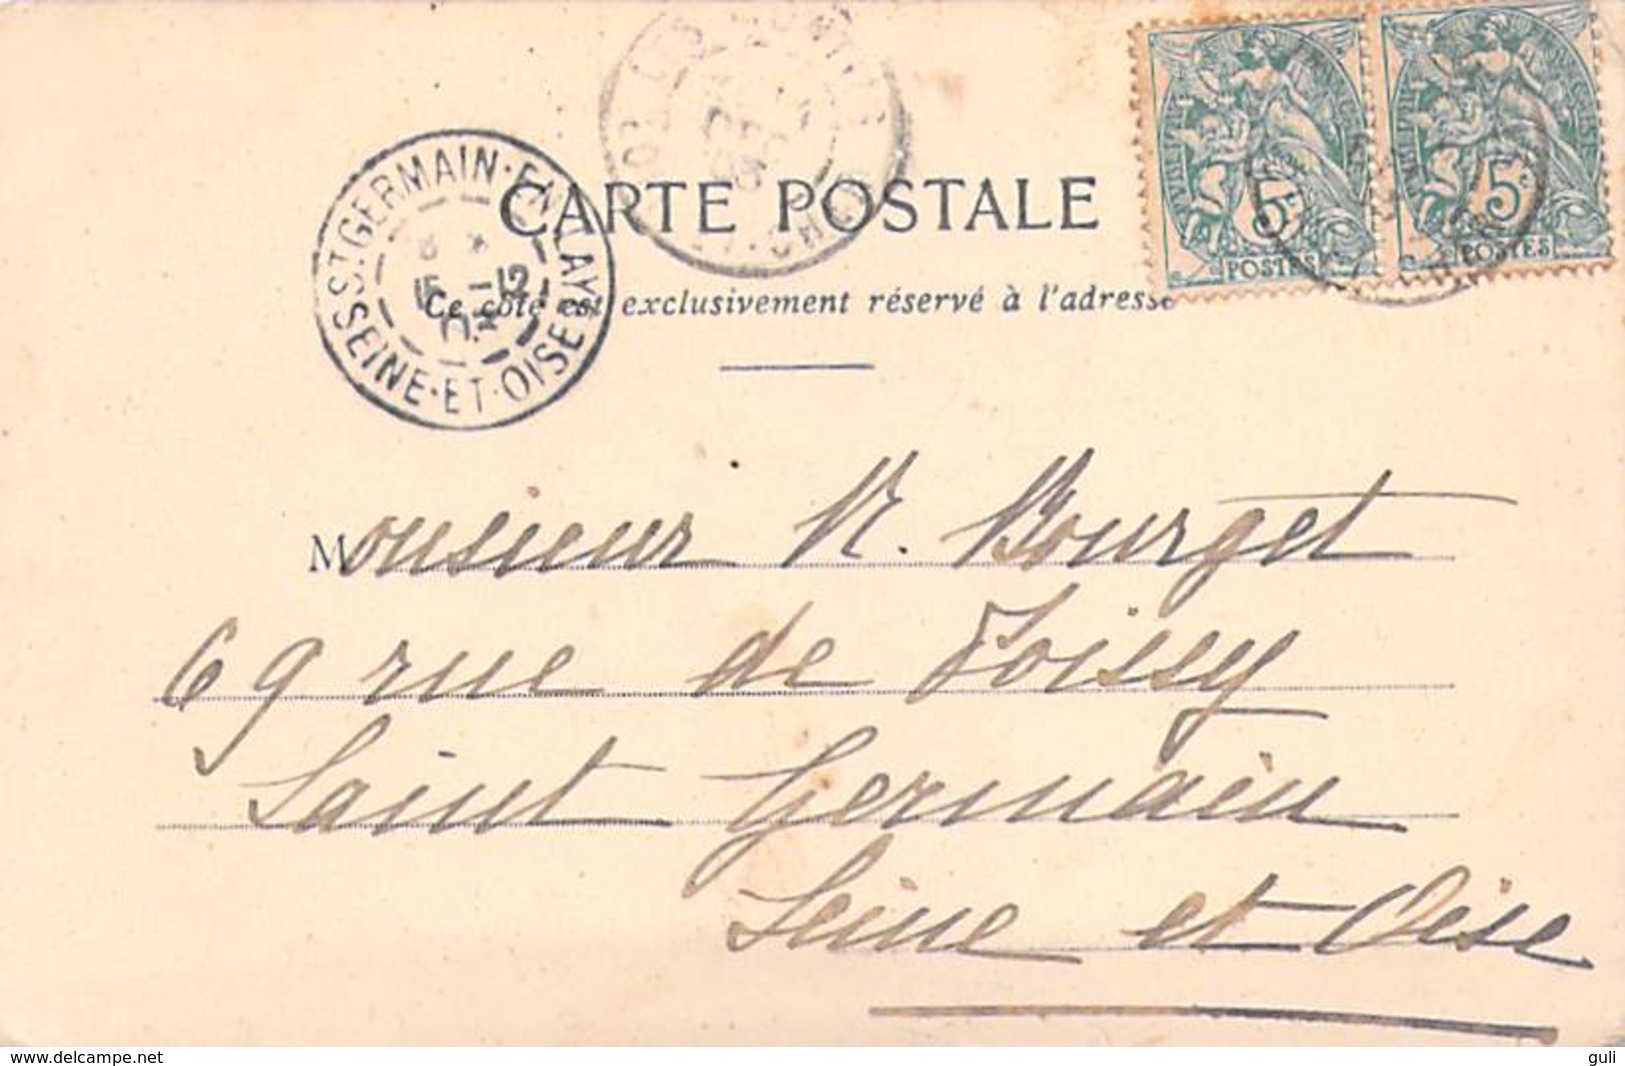 CARTE POSTALE
Ce côté est exclusivement réservé à l'adresse
ST GERMAIN-EN-LAYE
15 -12
03
SEINE-ET-OISE
5c
POSTES
5c
POSTES
Monsieur R. Bourget
69 rue de Poissy
Saint Germain
Seine et Oise
www.delcampe.net
guli